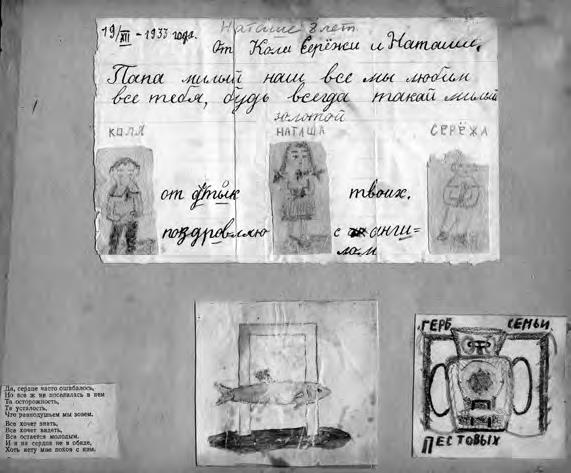 19/XII - 1933 года. Наташе 8 лет
От Коли Серёжи и Наташи.
Папа милый наш все мы любим
все тебя, будь всегда такай милый
золотой
КОЛЯ НАТАША СЕРЁЖА
от дтык твоих.
поздровлю с анги=
лом
ГЕРБ СЕМЬИ
ПЕСТОВЫХ
Да, сердце часто ошибалось,
Но все ж не поселилась в нем
Та осторожность,
Та усталость,
Что равнодушьем мы зовем.
Все хочет знать,
Все хочет видеть,
Все остается молодым.
И я на сердце не в обиде,
Хоть нету мне покоя с ним.